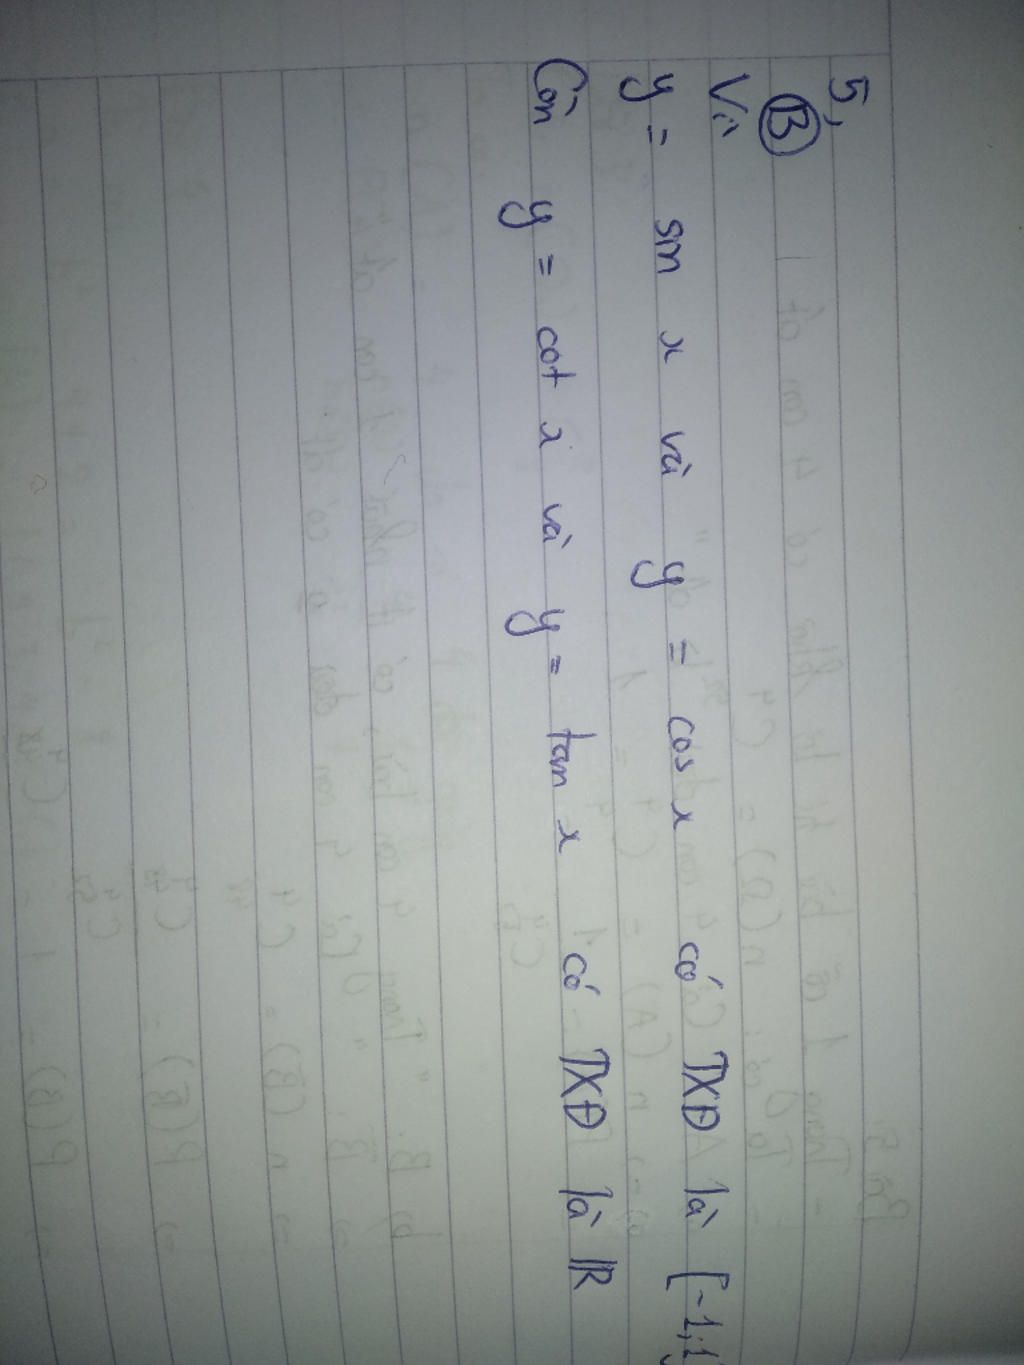 5,
B
Vì
y = sin x và y = cos x có TXĐ là [-1;1
Còn y = cot x và y = tan x có TXĐ là ℝ